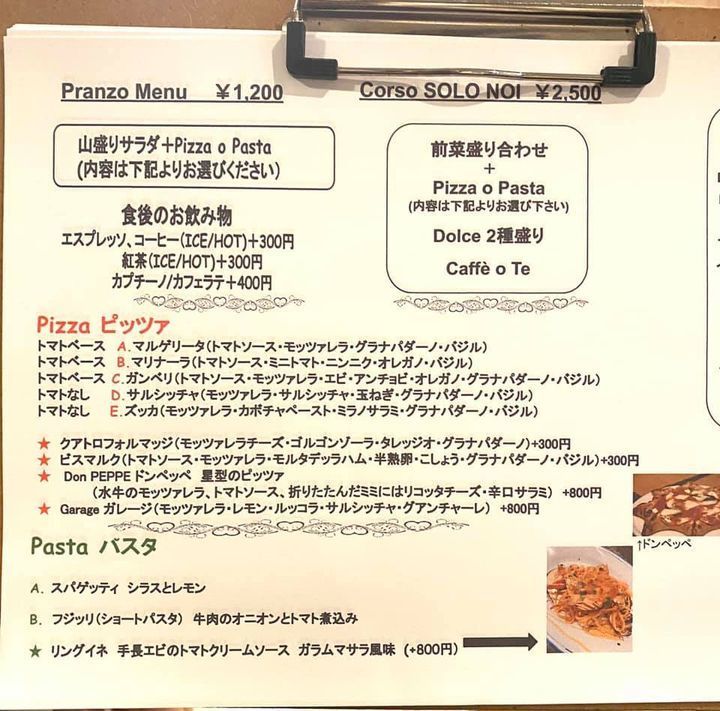 Pranzo Menu ￥1,200
山盛りサラダ＋Pizza o Pasta
(内容は下記よりお選びください)
食後のお飲み物
エスプレッソ、コーヒー(ICE/HOT)＋300円
紅茶(ICE/HOT)＋300円
カプチーノ/カフェラテ＋400円
Corso SOLO NOI ￥2,500
前菜盛り合わせ
＋
Pizza o Pasta
(内容は下記よりお選び下さい)
Dolce 2種盛り
Caffè o Te
Pizza ピッツァ
トマトベース A.マルゲリータ(トマトソース・モッツァレラ・グラナパダーノ・バジル)
トマトベース B.マリナーラ(トマトソース・ミニトマト・ニンニク・オレガノ・バジル)
トマトベース C.ガンベリ(トマトソース・モッツァレラ・エビ・アンチョビ・オレガノ・グラナパダーノ・バジル)
トマトなし D.サルシッチャ(モッツァレラ・サルシッチャ・玉ねぎ・グラナパダーノ・バジル)
トマトなし E.ズッカ(モッツァレラ・カボチャペースト・ミラノサラミ・グラナパダーノ・バジル)
★ クアトロフォルマッジ(モッツァレラチーズ・ゴルゴンゾーラ・タレッジオ・グラナパダーノ)+300円
★ ビスマルク(トマトソース・モッツァレラ・モルタデッラハム・半熟卵・こしょう・グラナパダーノ・バジル)+300円
★ Don PEPPE ドンペッペ 星型のピッツァ
(水牛のモッツァレラ、トマトソース、折りたたんだミミにはリコッタチーズ・辛口サラミ) +800円
★ Garage ガレージ(モッツァレラ・レモン・ルッコラ・サルシッチャ・グアンチャーレ) +800円
↑ドンペッペ
Pasta パスタ
A. スパゲッティ シラスとレモン
B. フジッリ(ショートパスタ) 牛肉のオニオンとトマト煮込み
★ リングイネ 手長エビのトマトクリームソース ガラムマサラ風味 (+800円)